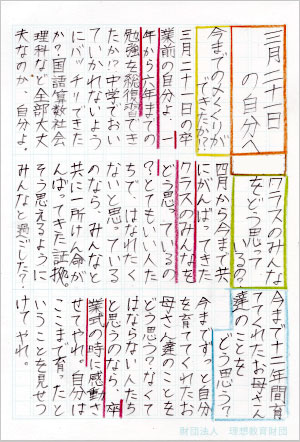 三月二十一日
の自分へ
今までの〆くくりが
できたか？
三月二十一日の卒
業前の自分よ、一
年から六年までの
勉強を総復習でき
たか？中学でおい
ていかれないよう
にバッチリできた
か？国語算数社会
理科など全部大丈
夫なのか、自分よ。
クラスのみんな
をどう思っているの？
四月から今まで共
にがんばってきた
クラスのみんなを
どう思っているの
？とてもいい人た
ちで、はなれたく
ないと思っている
のなら、みんなと
共に一所けん命が
んばってきた証拠。
そう思えるように
みんなと過ごした？
今まで十二年間育
ててくれたお母さん
達のことを
どう思う？
今までずっと自分
を育ててくれたお
母さん達のことを
どう思う？なくて
はならない人たち
と思うのなら、卒
業式の時に感動さ
せてやれ。自分は
ここまで育ったと
いうことを見せつ
けてやれ。
財団法人　理想教育財団